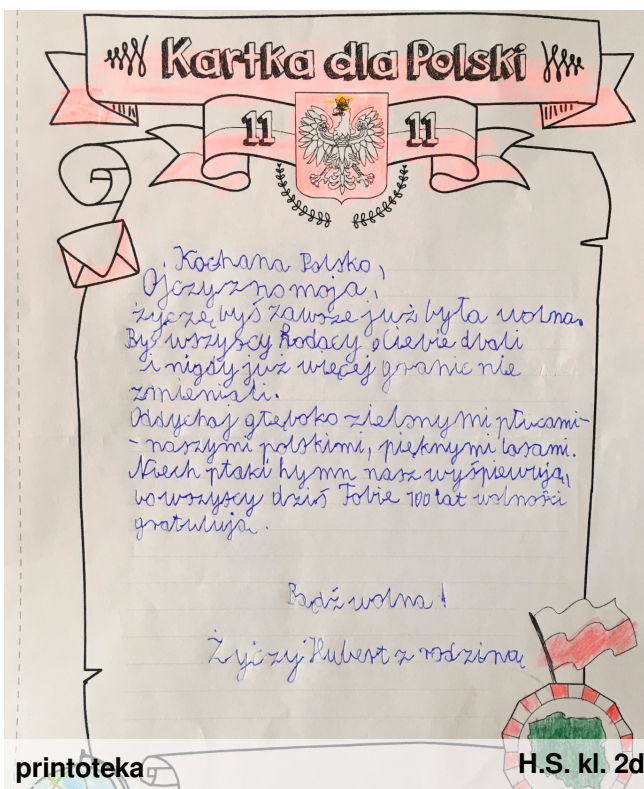 Kartka dla Polski
11 11
Kochana Polsko,
Ojczyzno moja,
życzę byś zawsze już była wolna.
By wszyscy Rodacy o Ciebie dbali
i nigdy już więcej granic nie
zmieniali.
Oddychaj głęboko zielonymi płucami-
- naszymi polskimi, pięknymi lasami.
Niech ptaki hymn nasz wyśpiewują,
bo wszyscy dziś Tobie 100 lat wolności
gratulują.
Bądź wolna!
Życzy Hubert z rodziną
printoteka
H.S. kl. 2d